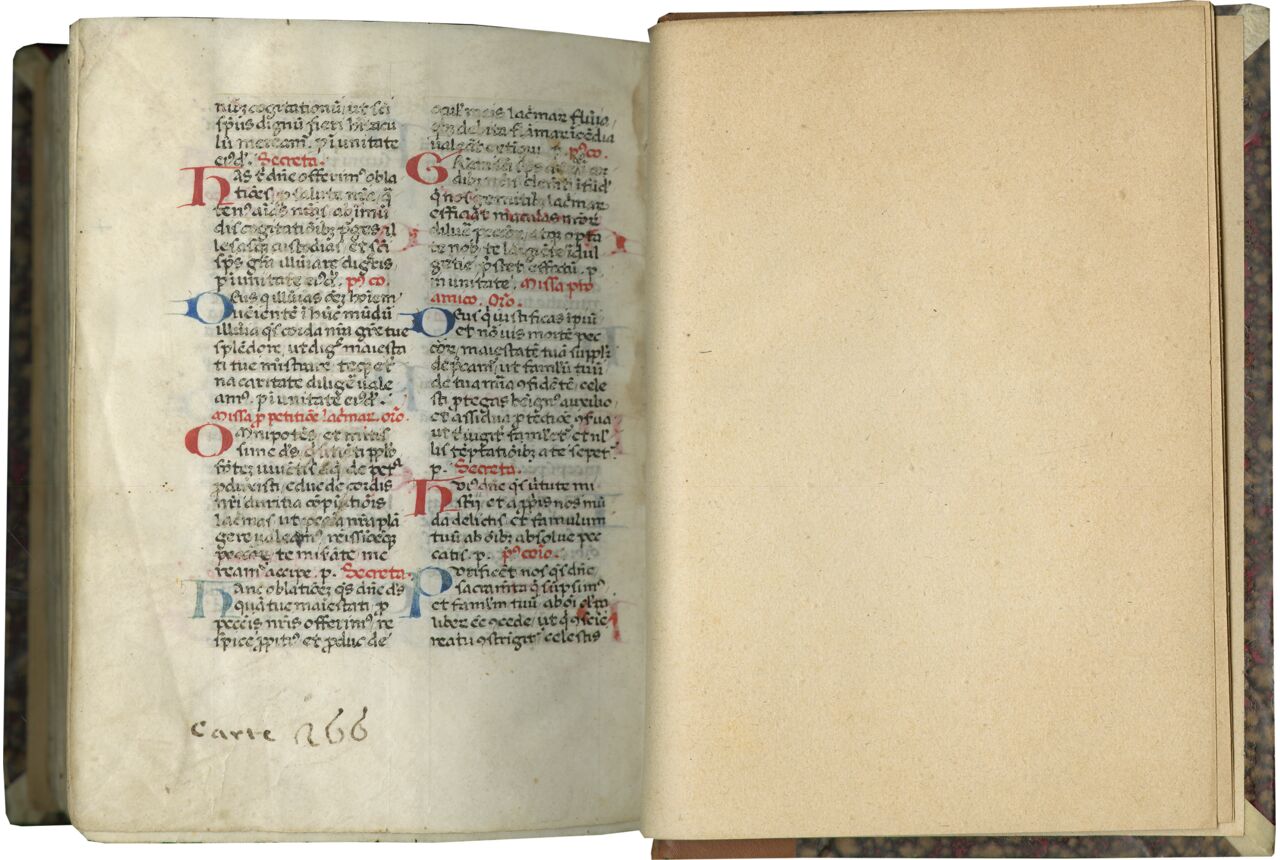 cogitationū, ut sc̄i
sp̄us dignū fieri hītacu
lū mereamr̄. p̄ı unitate
eiꝰd'. Secreta.
Has t' dn̄e offerimꝰ obla
tiōes p salute
tenꝰ aīas nr̄as ab īmū
dis cogitationibꝫ p̄ges il
lesasqꝫ custodias et sc̄i
sp̄s gr̄a illuīare digrīs
p̄ı unitate eiꝰd'. pꝰ co.
Deus q̄ illuīas oēꝫ hoīem
ueniente ī huc mūdū
illuīa qs̄ corda nr̄a gr̄e tue
splēdore, ut digꝰ maiesta
ti tue
na caritate diligē uale
amꝰ. p̄ı unitate eiꝰd'.
Missa p petitiōe lac̄mar. or̄o.
Omnipotēs et mitis
sime ds̄ q̄ sitiēti pplō
fōtē uiuētis aq̄ de petᵃ
pduxisti, educ de cordis
nr̄i duritia cōpūctiōis
lac̄mas ut pecc̄a nr̄a plā
gere ualeamꝰ
te miserāte me
reamꝰ accipe. p. Secreta.
Hanc oblationeꝫ qs̄ dn̄e ds̄
quā tue maiestati p
pecc̄is nr̄is offerimꝰ re
spice ppitiꝰ et pduc de
ocul' nr̄is lac̄mar fluīa
q̄bꝫ debita flāmar īcēdia
ualeāt extīgui. p. pꝰ co.
G
dibꝫ nr̄is
q̄ nos gemitibꝫ lac̄mar
efficiat maculas
diluē peccōꝫ, atqꝫ opta
te nob' te largiēte īdul
gētie p̄stet effectū. p
in unitate. Missa pro
amico. Or̄o.
Deus q̄ iustificas īpiū
et nō uis mortē pec
cōꝫ, maiestatē tuā suppli
dep̄camr̄, ut famlm̄ tuū
de tua mīa ꝯfidētē, cele
sti ptegas beīgnꝰ auxilio
et assidua ptectiōe ꝯserua
ut t' iugit' famulet' et nl'
lis tēptatiōibꝫ a te sepet'
p. Secreta.
Huiꝰ dn̄e qs̄ ūtute mi
strii et a pp̄iis nos mū
da delictis et famulum
tuū ab oībꝫ absolue pec
catis. p. pꝰ cōio.
Purificet nos qs̄ dn̄e
sacram̄ta q̄ sūpsimꝰ
et famlm̄ tuū ab oī
liberē ꝯcede, ut q̄ ꝯsciē
reatu ꝯstrigit' celestis
carte 266